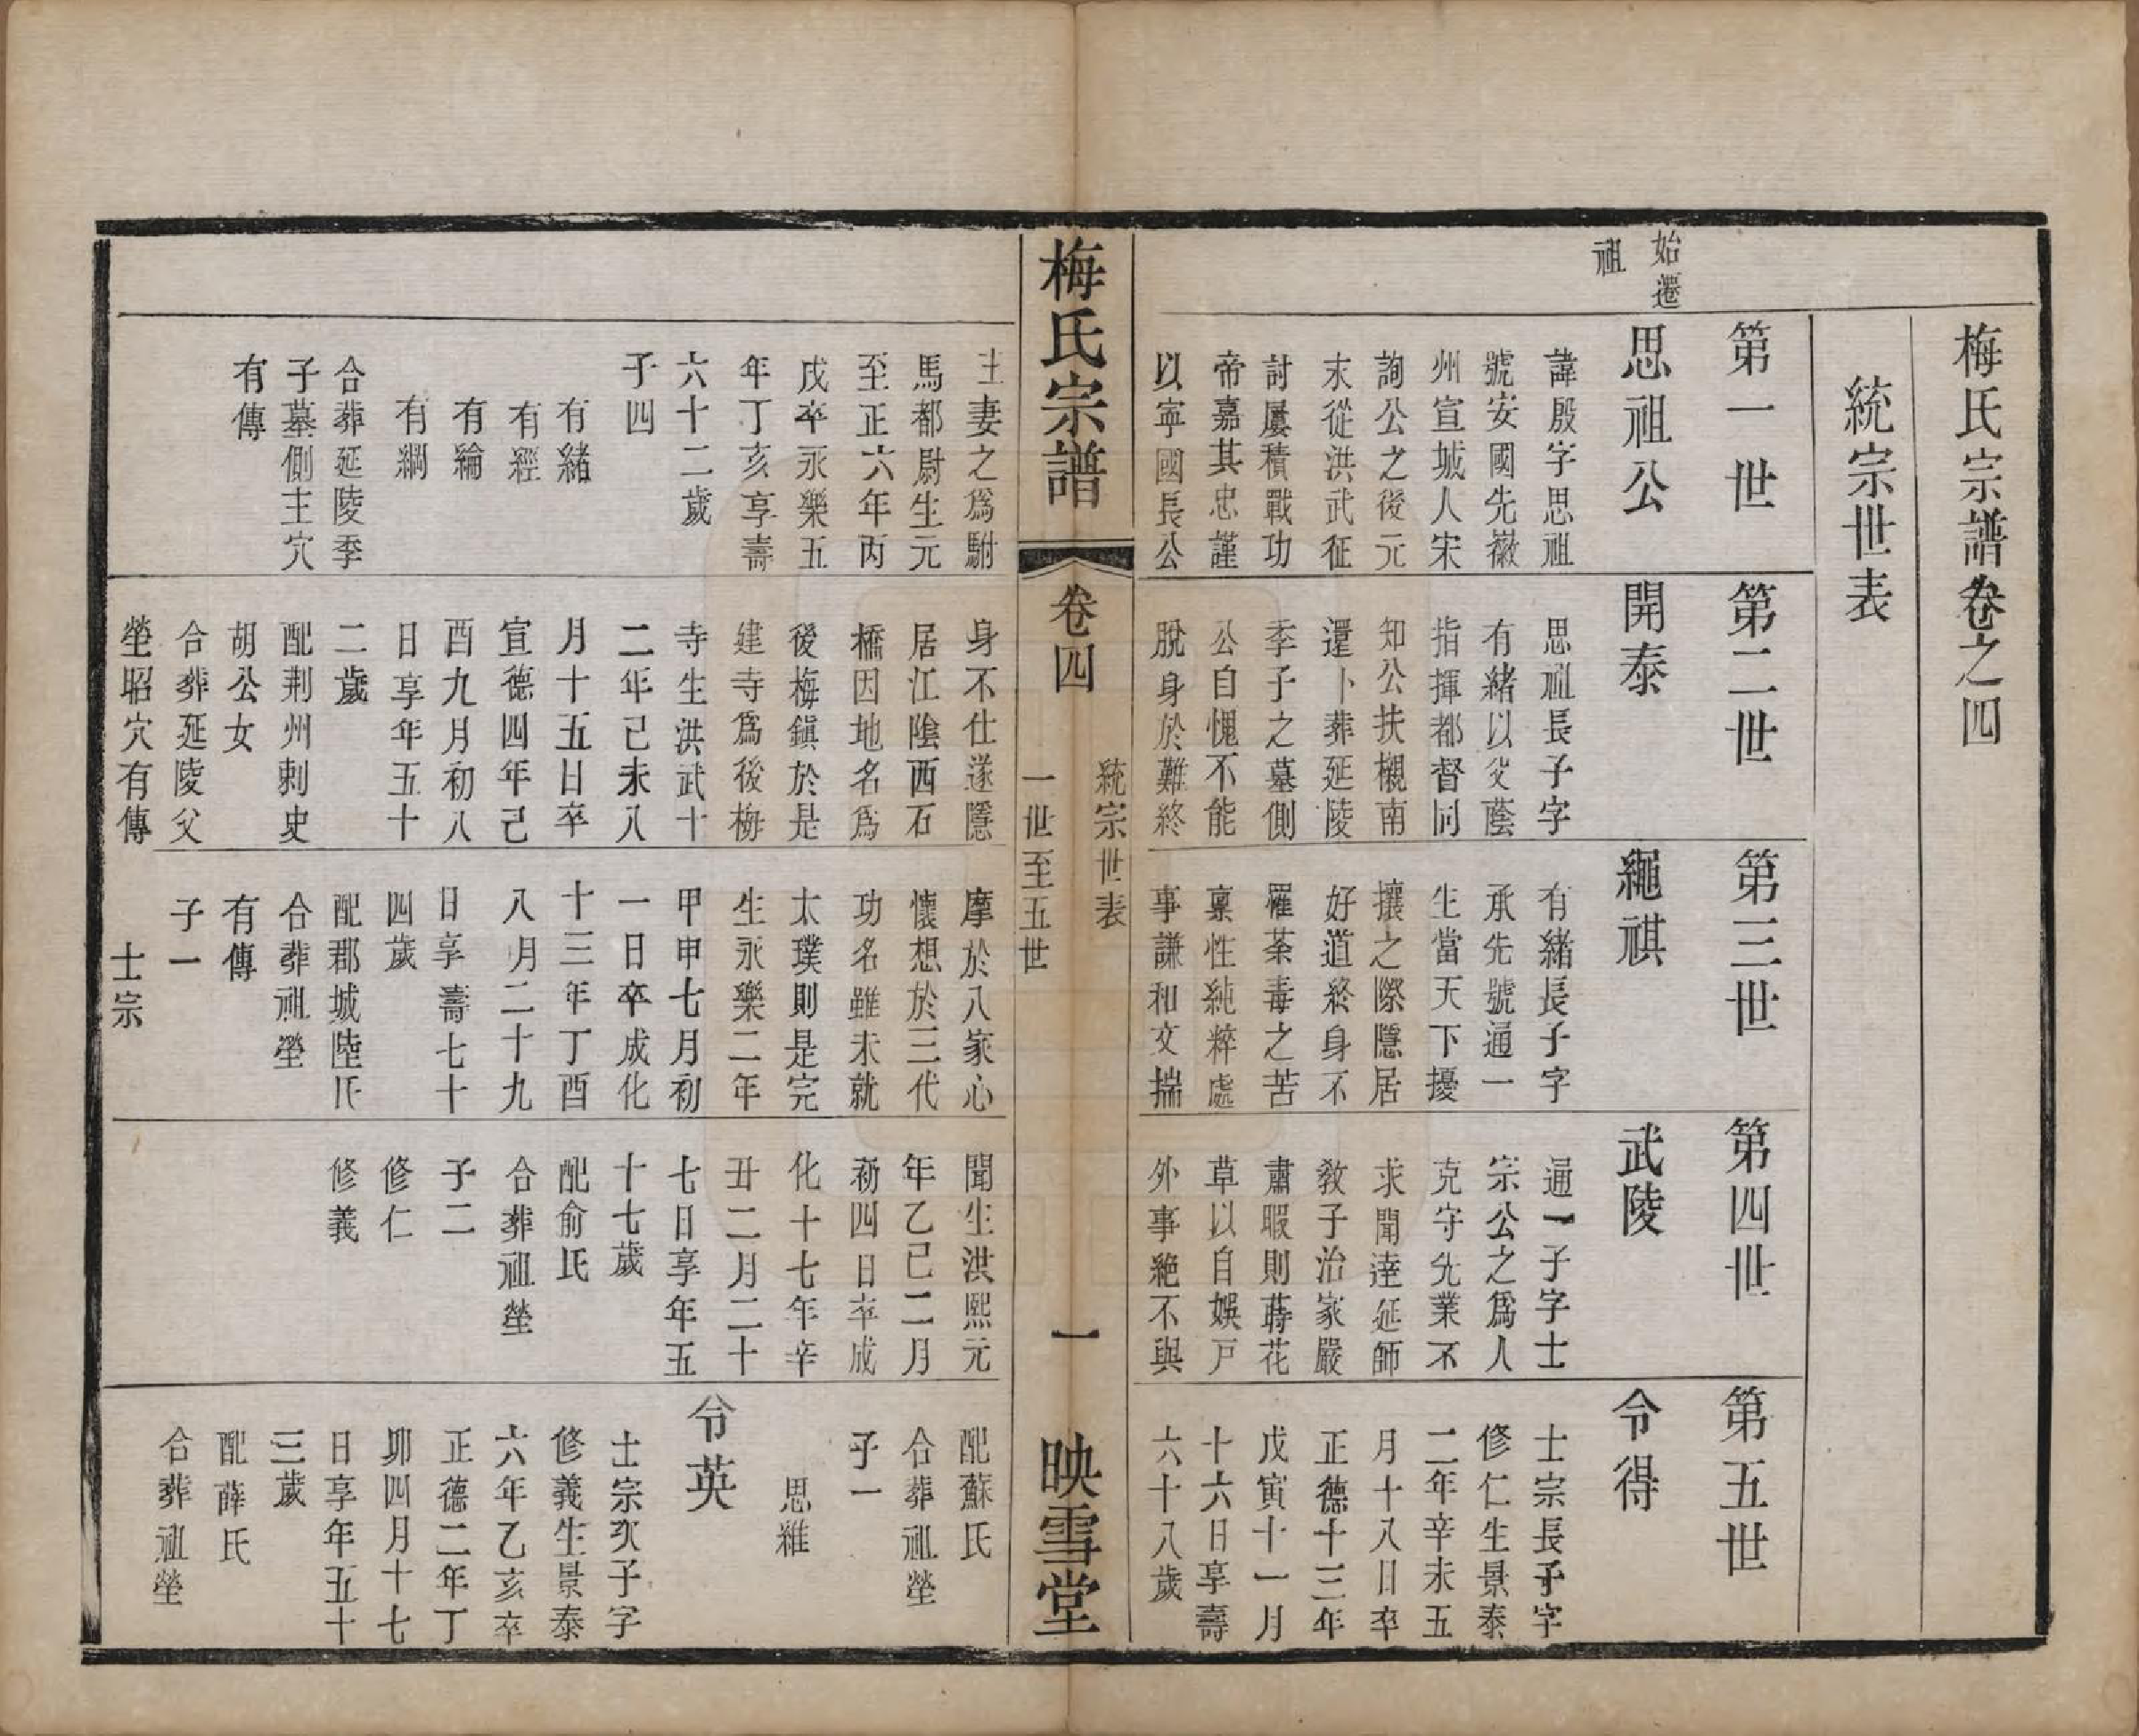 梅氏宗譜卷之四
統宗世表
始遷
祖
第一世
思祖公
諱殷字思祖
號安國先徽
州宣城人宋
詢公之後元
末從洪武征
討屢積戰功
帝嘉其忠謹
以寧國長公
主妻之爲駙
馬都尉生元
至正六年丙
戌卒永樂五
年丁亥享壽
六十二歲
子四
有緒
有經
有綸
有綱
合葬延陵季
子墓側主穴
有傳
第二世
開泰
思祖長子字
有緒以父蔭
指揮都督同
知公扶櫬南
還卜葬延陵
季子之墓側
公自愧不能
脫身於難終
身不仕遂隱
居江陰西石
橋因地名爲
後梅鎭於是
建寺爲後梅
寺生洪武十
二年己未八
月十五日卒
宣德四年己
酉九月初八
日享年五十
二歲
配荆州刺史
胡公女
合葬延陵父
塋昭穴有傳
第三世
繩祺
有緒長子字
承先號通一
生當天下擾
攘之際隱居
好道終身不
罹荼毒之苦
稟性純粹處
事謙和文揣
摩於八家心
懷想於三代
功名雖未就
太璞則是完
生永樂二年
甲申七月初
一日卒成化
十三年丁酉
八月二十九
日享壽七十
四歲
配郡城陸氏
合葬祖塋
有傳
子一
士宗
第四世
武陵
通一子字士
宗公之爲人
克守先業不
求聞達延師
敎子治家嚴
肅暇則蒔花
草以自娛戸
外事絶不與
聞生洪熙元
年乙巳二月
初四日卒成
化十七年辛
丑二月二十
七日享年五
十七歲
配俞氏
合葬祖塋
子二
修仁
修義
第五世
令得
士宗長子字
修仁生景泰
二年辛未五
月十八日卒
正德十三年
戊寅十一月
十六日享壽
六十八歲
配蘇氏
合葬祖塋
子一
思維
令英
士宗次子字
修義生景泰
六年乙亥卒
正德二年丁
卯四月十七
日享年五十
三歲
配薛氏
合葬祖塋
梅氏宗譜
卷四
統宗世表
一世至五世
一
映雪堂